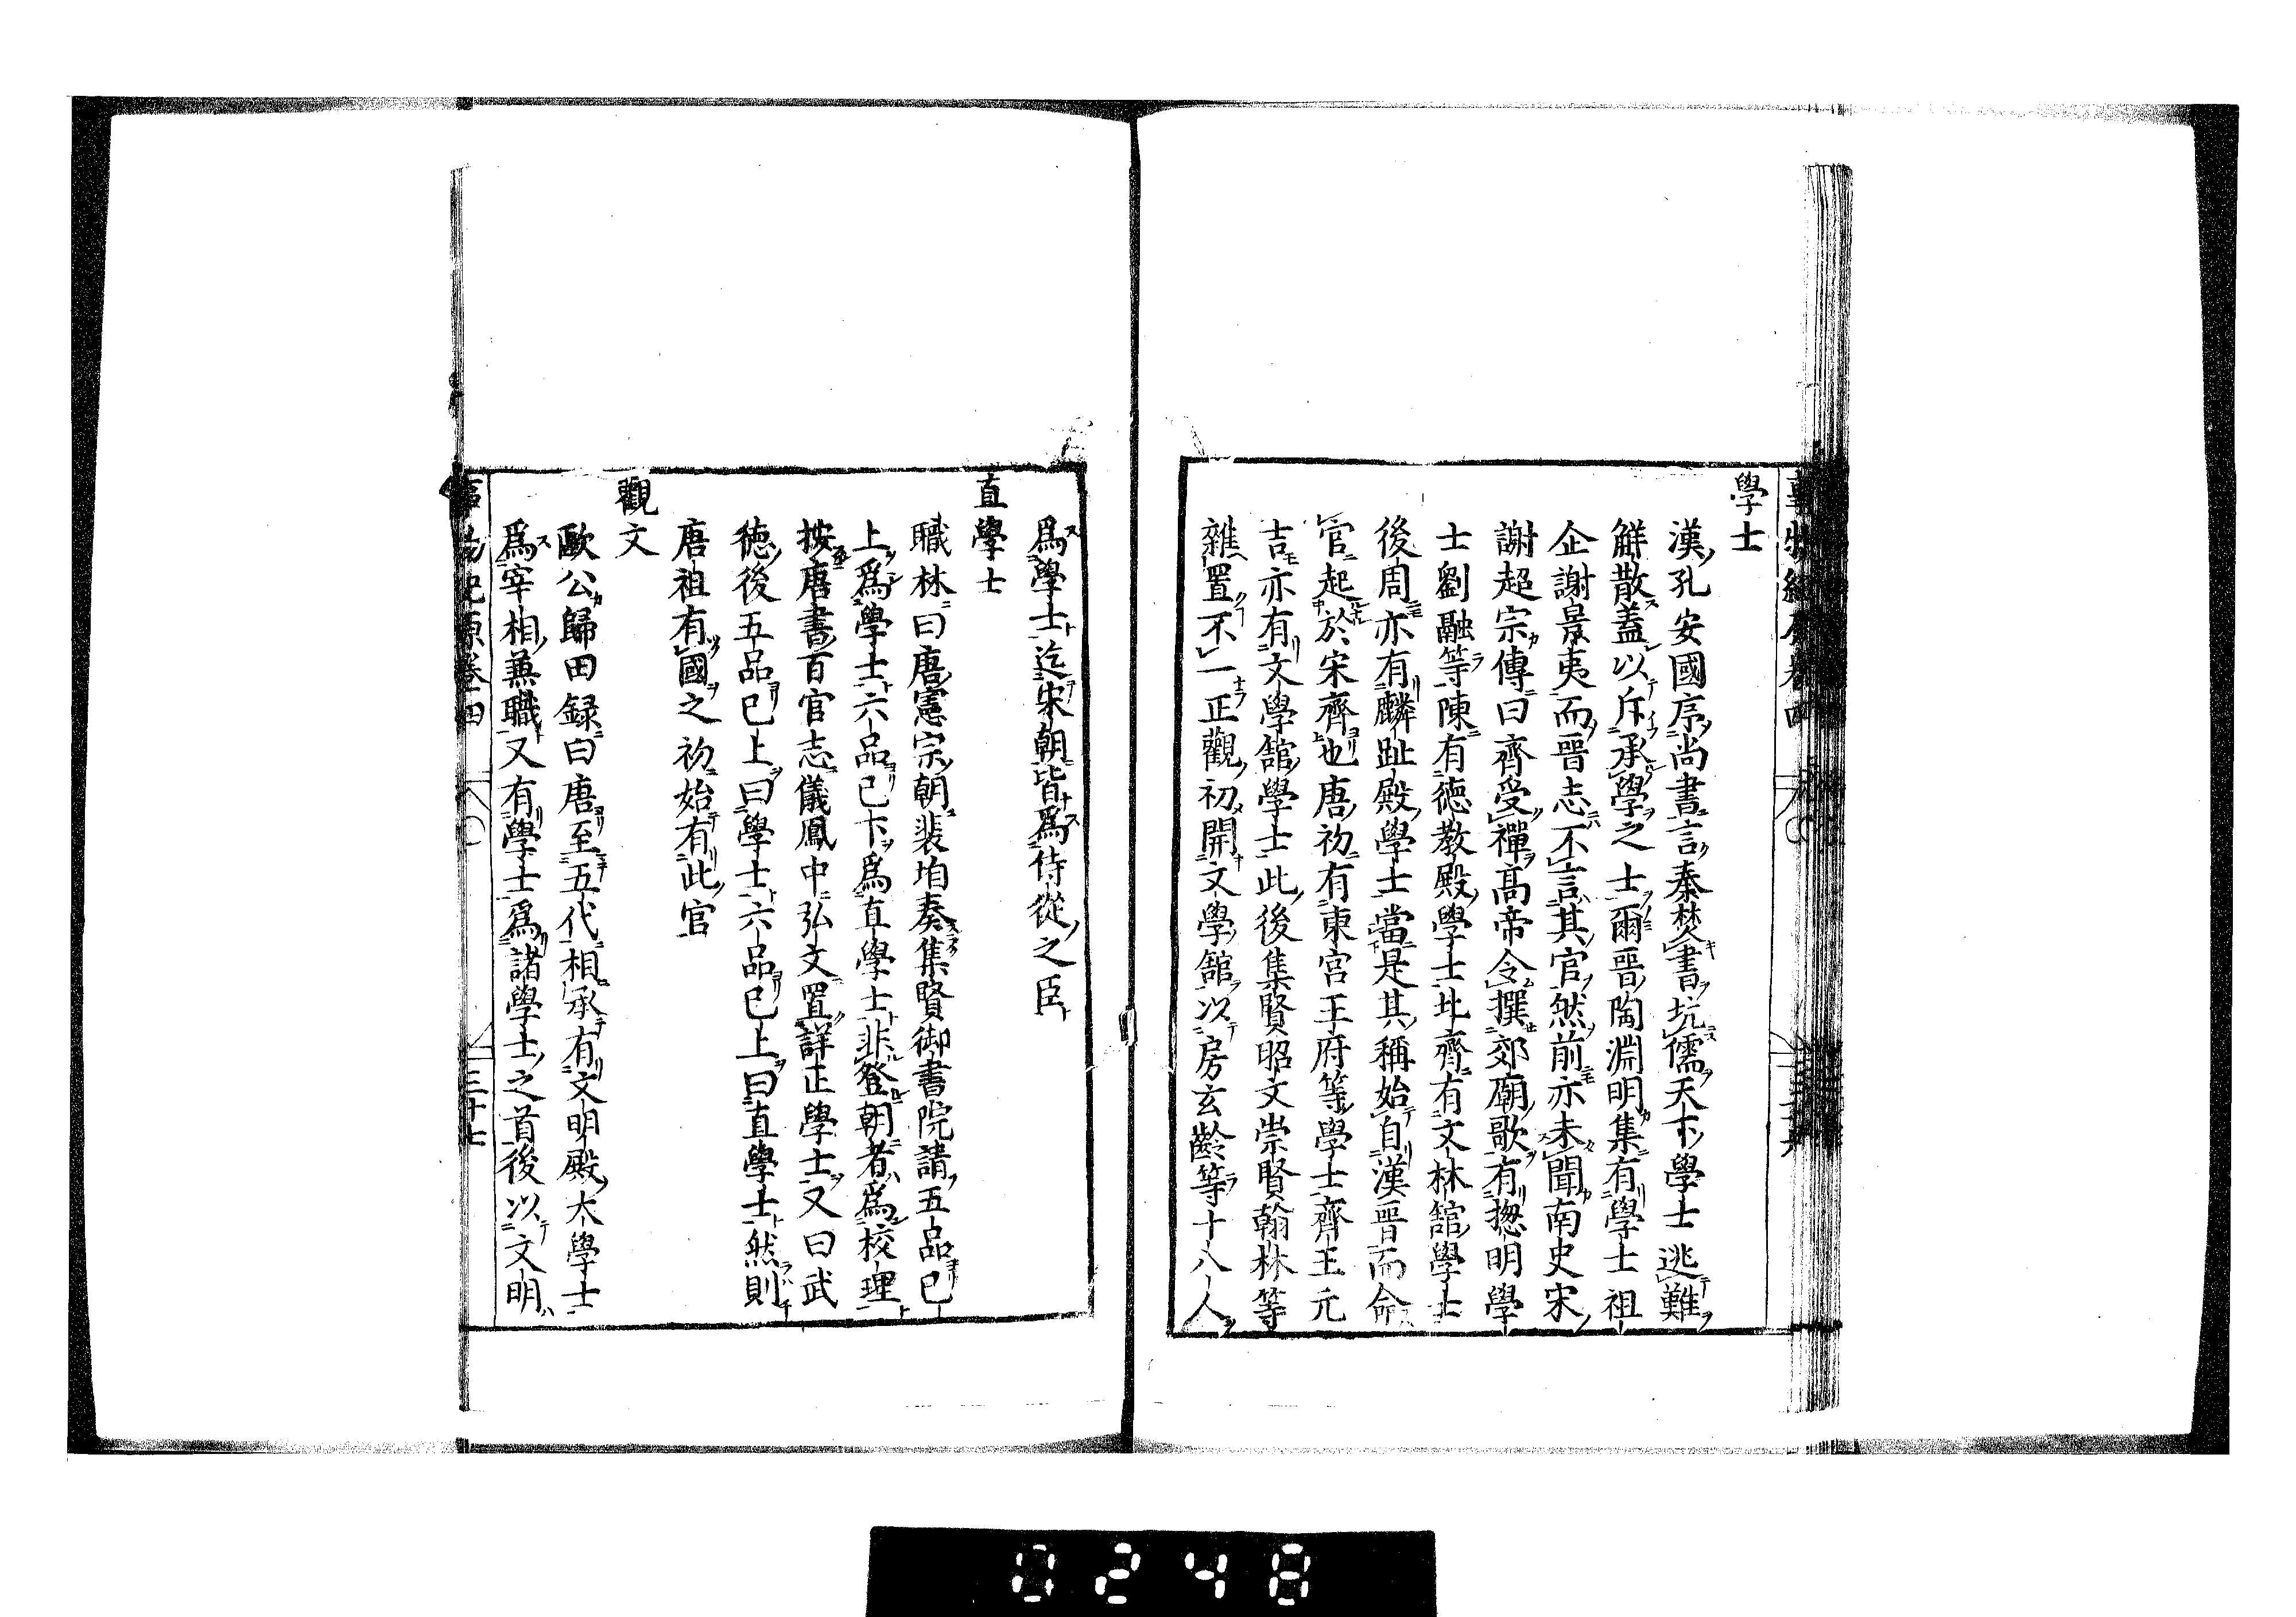 學士
漢孔安國序尚書言秦焚書坑儒天下學士逃難
解散蓋以斥承學之士爾晉陶淵明集有學士祖
企謝景夷而晉志不言其官然前亦未聞南史宋
謝超宗傳曰齊受禪高帝令撰郊廟歌有揔明學
士劉融等陳有德教殿學士北齊有文林舘學士
後周亦有麟趾殿學士當是其稱始自漢晉而命
官起於宋齊也唐初有東宮王府等學士齊王元
吉亦有文學舘學士此後集賢昭文崇賢翰林等
雜置不一正觀初開文學舘以房玄齡等十八人
爲學士迄宋朝皆爲侍從之臣
直學士
職林曰唐憲宗朝裴垍奏集賢御書院請五品已
上爲學士六品已下爲直學士非登朝者爲校理
按唐書百官志儀鳳中弘文置詳正學士又曰武
德後五品已上曰學士六品已上曰直學士然則
唐祖有國之初始有此官
觀文
歐公歸田録曰唐至五代相承有文明殿大學士
爲宰相兼職又有學士爲諸學士之首後以文明
事物紀原卷四 三十七
0248